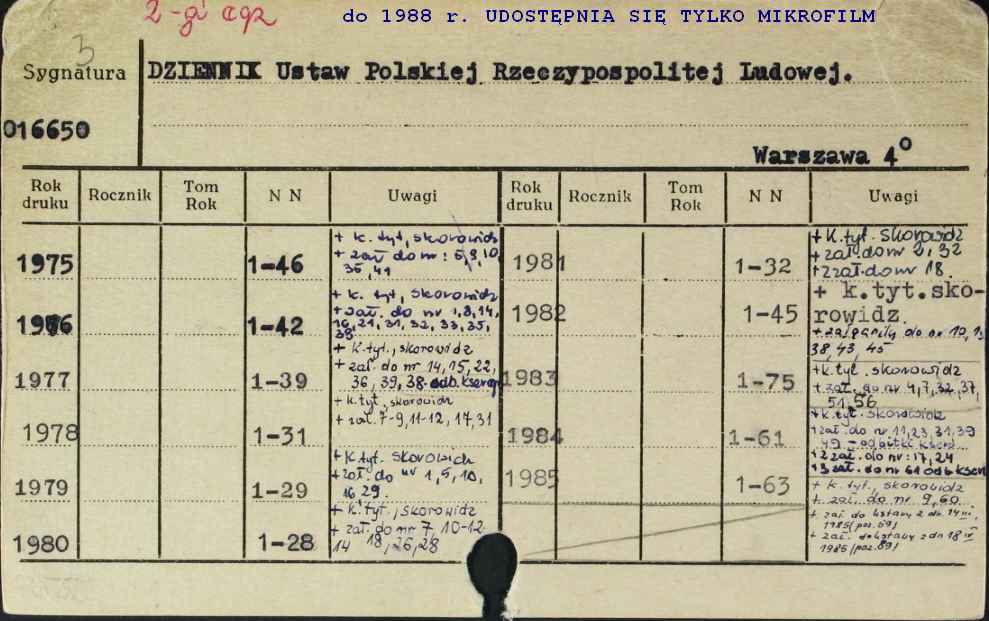 2-gi egz
do 1988 r. UDOSTĘPNIA SIĘ TYLKO MIKROFILM
3
Sygnatura
DZIENNIK Ustaw Polskiej Rzeczypospolitej Ludowej.
016650
Warszawa 4°
Rok druku Rocznik Tom Rok N N Uwagi Rok druku Rocznik Tom Rok N N Uwagi
1975 1-46
+ k. tyt, skorowidz
+ zał do nr: 6,9,10,
35, 41
1976 1-42
+ k. tyt, skorowidz
+ zał. do nr 1,8,14,
16, 21, 31, 32, 33, 35,
38
1977 1-39
+ k. tyt., skorowidz
+ zał. do nr 14, 15, 22,
36, 39, 38. odb. kserogr
1978 1-31
+ k. tyt, skorowidz
+ zał. 7-9, 11-12, 17, 31
1979 1-29
+ k. tyt. skorowidz
+ zał. do nr 1, 5, 10,
16 29.
1980 1-28
+ k. tyt., skorowidz
+ zał. do nr 7, 10-12
14 18, 26, 28
1981 1-32
+ k. tyt. skorowidz
+ zał. do nr 2, 32
+ 2 zał. do nr 18.
1982 1-45
+ k.tyt.sko-
rowidz.
do nr 10,
38, 43, 45
1983 1-75
+ k. tyt. skorowidz
+ zał. do nr 4, 7, 32, 37,
51, 56
1984 1-61
+ k. tyt. skorowidz
+ zał. do nr 11, 23, 31, 39
49 - odbitki ksero
+ 2 zał. do nr: 17, 24
+ 3 zał. do nr 61 odb kser
1985 1-63
+ k. tyt., skorowidz
+ zał. do nr. 9, 60.
+ zał do ustawy z dn 14 III,
1985 (poz. 59)
+ zał. do ustawy z dn 18 IV
1985 (poz. 89)